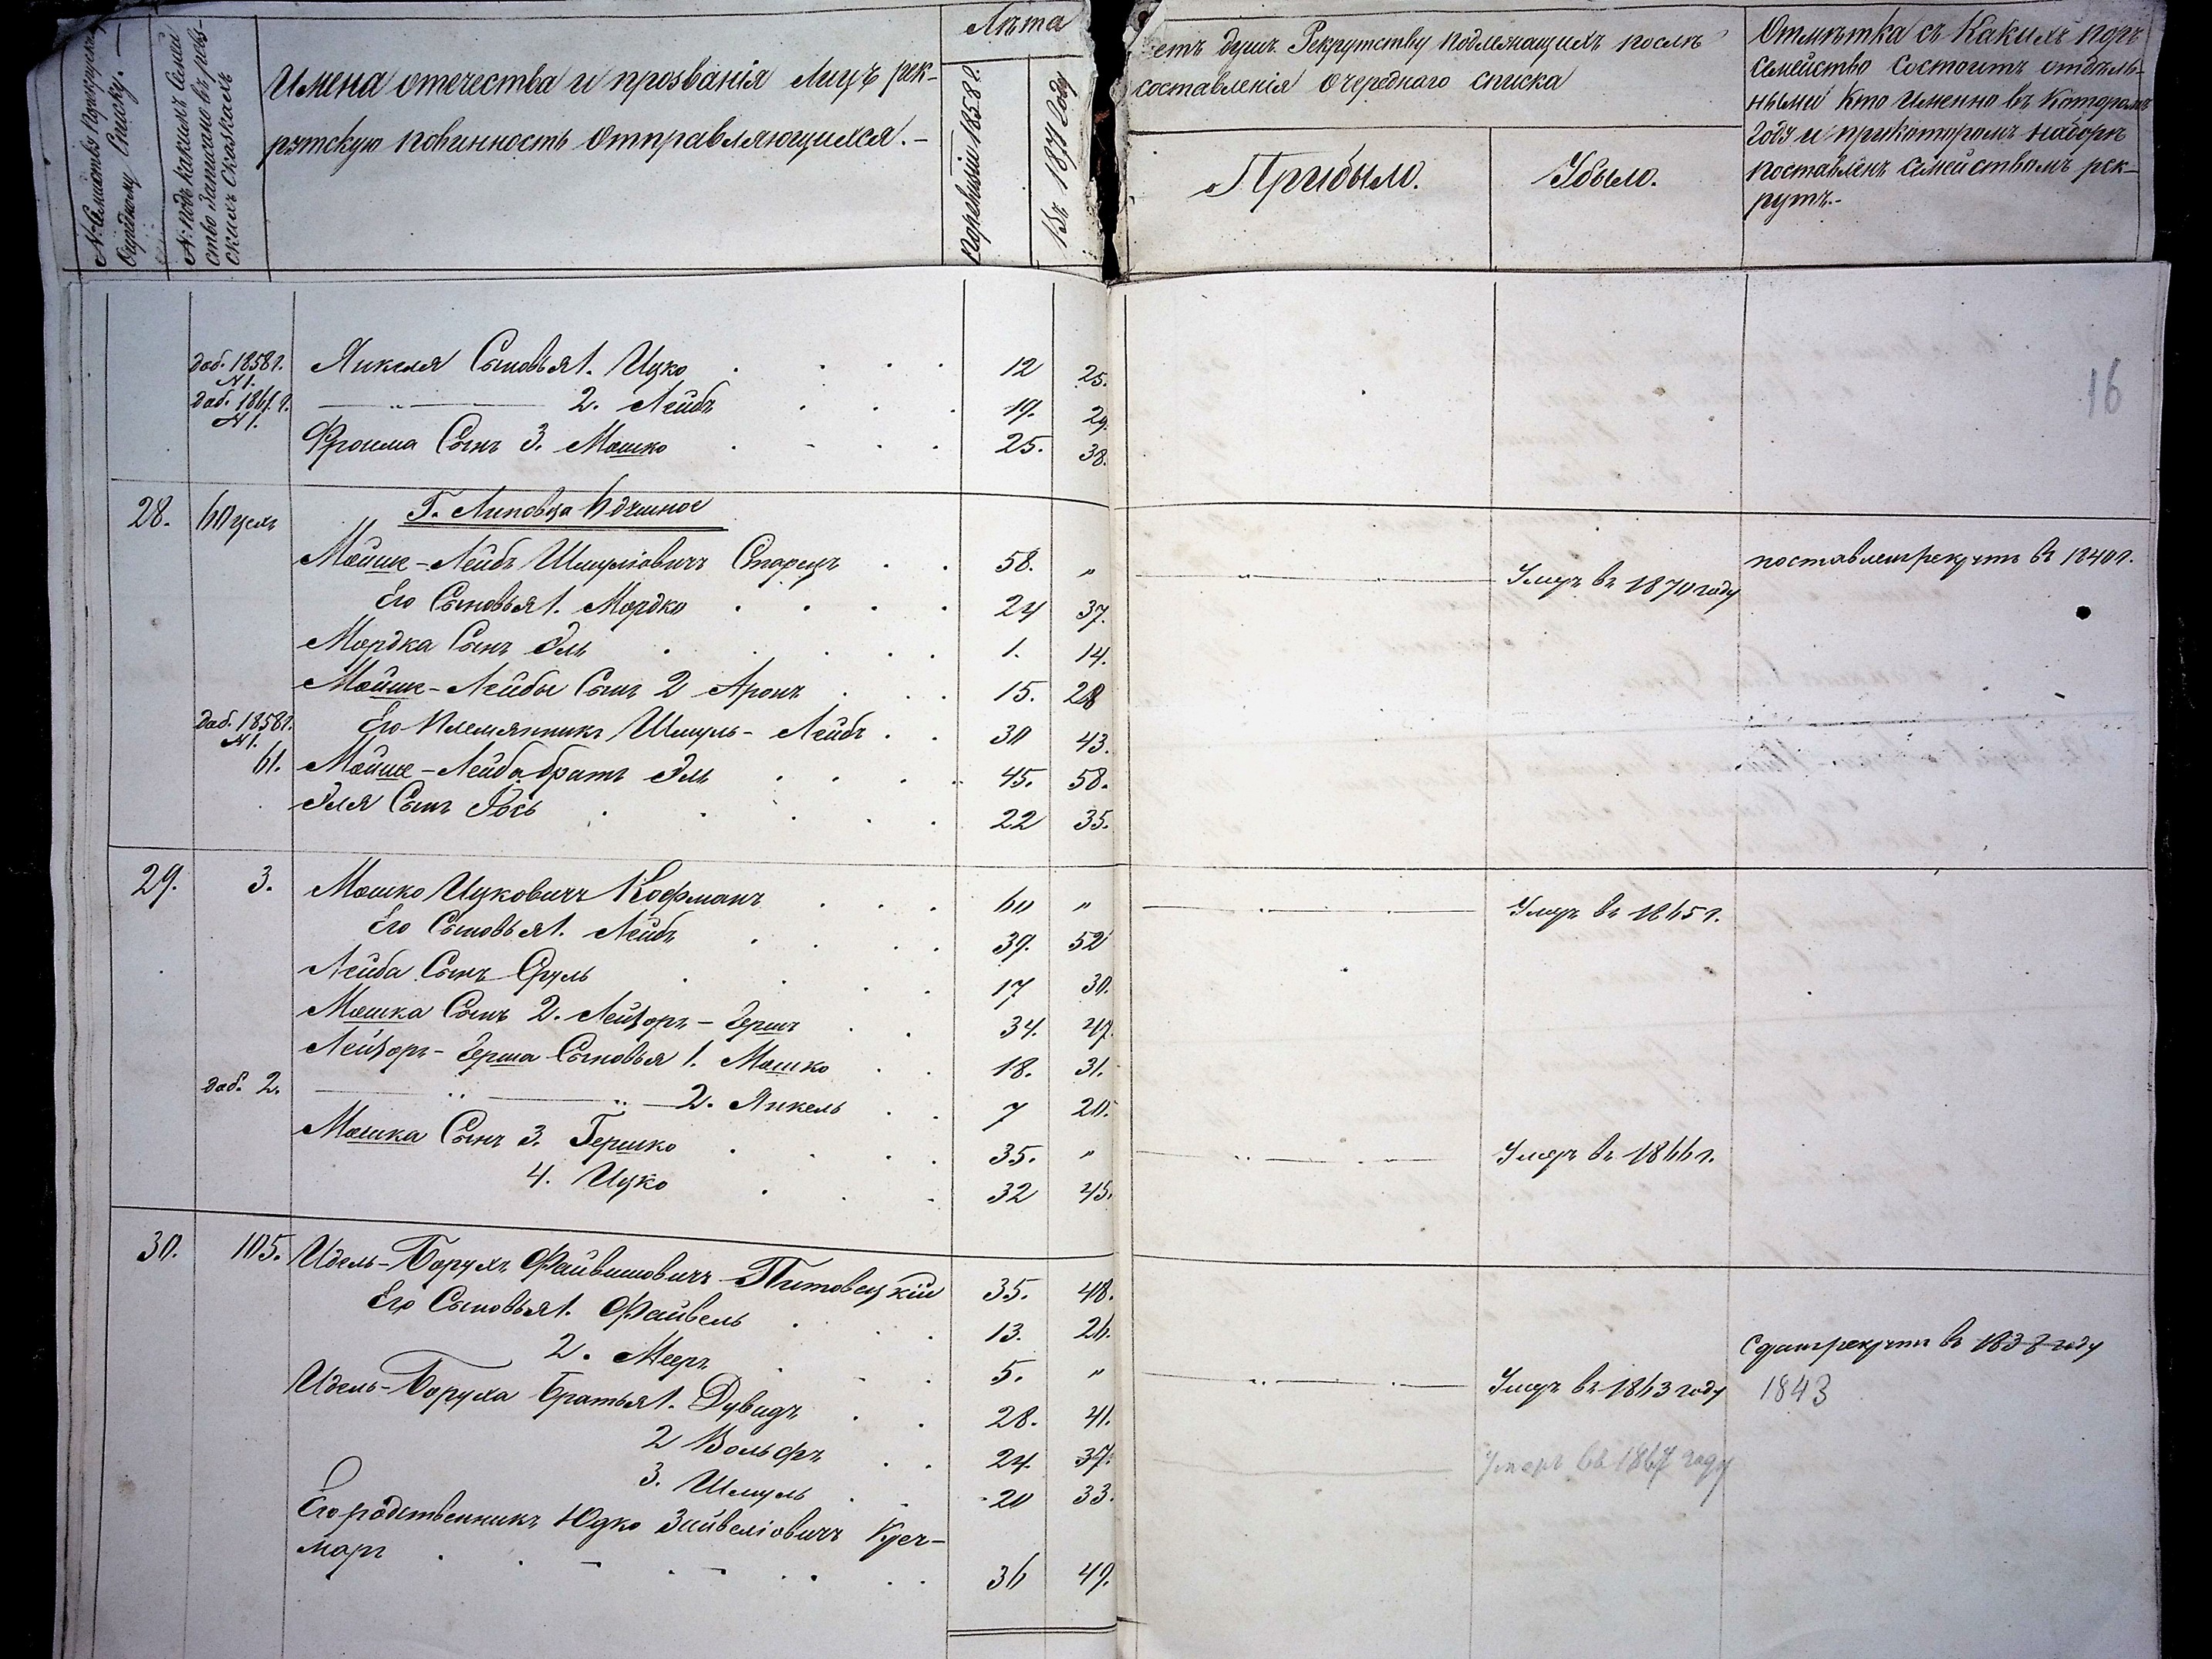 № Семейству По рекрутскому
Очередному Списку. —
№ Подъ Какимъ Семей
ство Записано въ реви-
скихъ Сказкахъ
Имена отечества и прозванія Лицъ рек-
рутскую повинность Отправляющихся. —
Лѣта
По ревизіи 1858 г.
Въ 1871 Году
етъ душъ Рекрутству подлежащихъ послѣ
составленія Очереднаго списка
Прибыло.
Убыло.
Отмѣтка съ Какихъ поръ
семейство состоитъ отдѣль-
нымъ Кто Именно въ Которомъ
Году и при которомъ наборѣ
поставленъ семействомъ рек-
рутъ.-
16
доб. 1858 г. Янкеля Сыновья 1. Ицко 12 25.
№ 1.
доб. 1861 г. — „ — 2. Лейбъ 19. 29.
№ 1.
Фроима Сынъ 3. Мошко 25. 38.
28. 60 Г. Липовца
Мойше-Лейбъ Шмуліовичъ Старецъ 58. „ — „ — Умеръ въ 1870 году поставленъ рекрутъ въ 1840 г.
Его Сыновья 1. Мордко 24 37.
Мордка Сынъ Эль 1. 14.
Мойше-Лейбы Сынъ 2 Аронъ 15. 28
доб. 1858 г. Его Племянникъ Шмуль-Лейбъ 30 43.
№ 1.
61. Мойше-Лейба братъ Эль 45. 58.
Эля Сынъ Іось 22 35.
29. 3. Мошко Ицковичъ Кофманъ 60 „ — Умеръ въ 1865 г.
Его Сыновья 1. Лейбъ 39. 52
Лейба Сынъ Сруль 17 30.
Мошка Сынъ 2. Лейзоръ-Гершъ 34. 47.
Лейзоръ-Герша Сыновья 1. Мошко 18. 31.
доб. 2. — „ — „ — 2. Янкель 7 20.
Мошка Сынъ 3. Гершко 35. „ — Умеръ въ 1866 г.
4. Ицко 32 45.
30. 105. Идель-Борухъ Файвишовичъ Питовецкій 35. 48.
Его Сыновья 1. Файвель 13. 26.
2. Мееръ 5. „ — Умеръ въ 1863 году Сданъ рекрутъ въ 1838 году
1843
Идель-Боруха Братья 1. Дувидъ 28. 41.
2 Вольфъ 24. 37. — Умеръ въ 1867 году
3. Шмуль 20 33.
Его родственникъ Юдко Зайвеліовичъ Креч-
маръ 36 49.